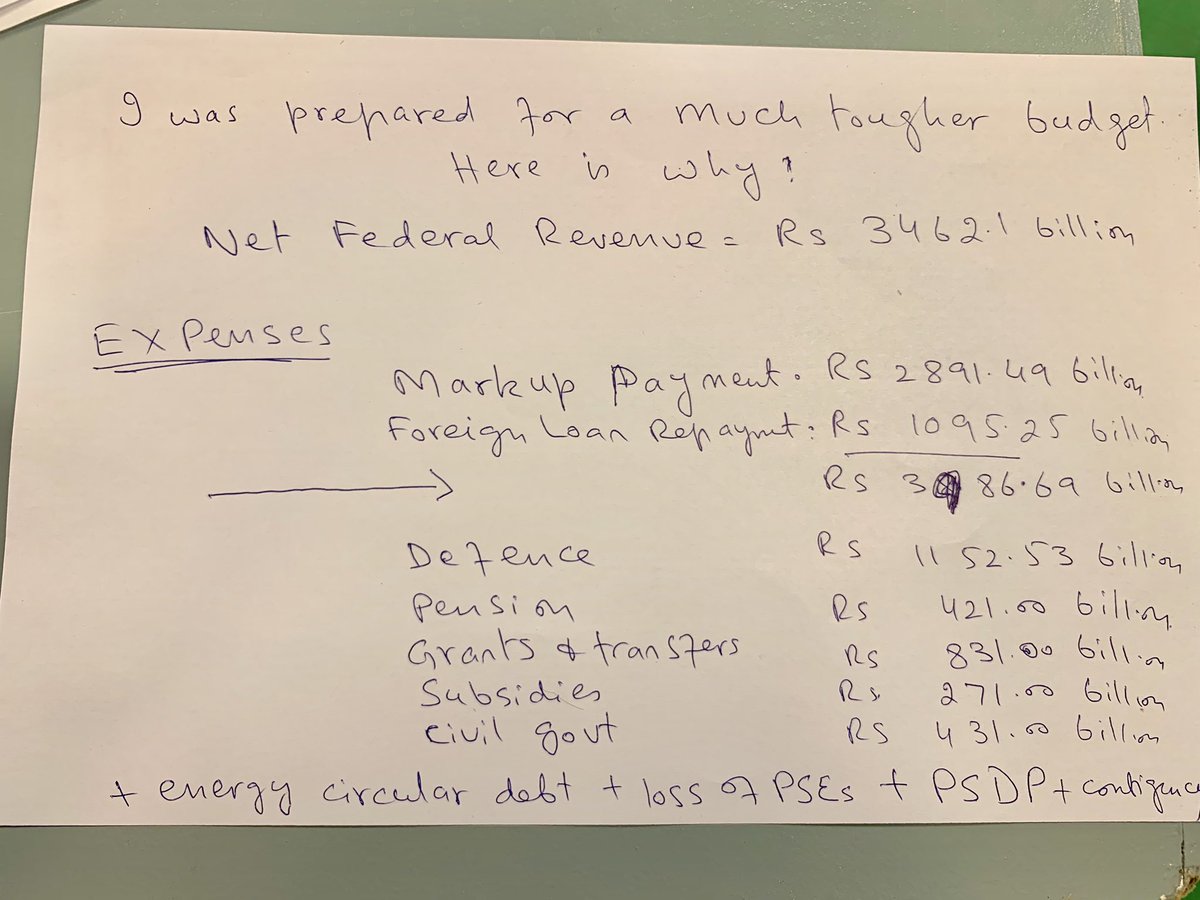 I was prepared for a much tougher budget.
Here is why!
Net Federal Revenue = Rs 3462.1 billion
Expenses
Markup Payment. Rs 2891.49 billion
Foreign Loan Repaymt: Rs 1095.25 billion
Rs 3986.69 billion
Defence Rs 1152.53 billion
Pension Rs 421.00 billion
Grants & transfers Rs 831.00 billion
Subsidies Rs. 271.00 billion
Civil govt Rs 431.00 billion
+ energy circular debt + loss of PSEs + PSDP + contigence